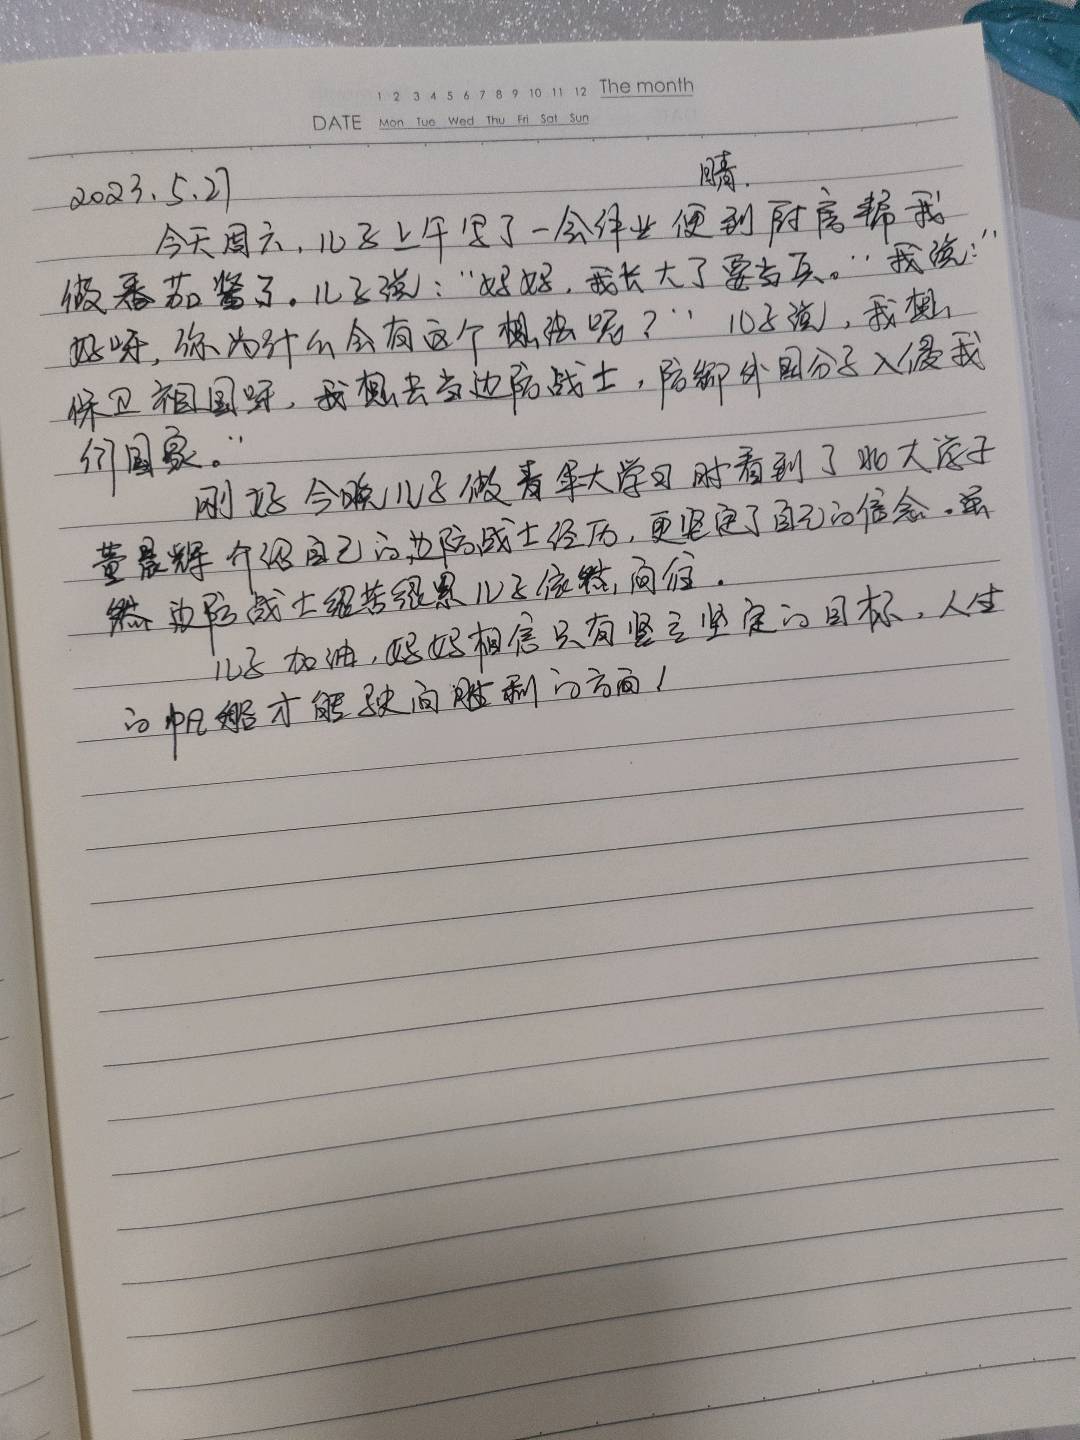 1 2 3 4 5 6 7 8 9 10 11 12 The month
DATE Mon Tue Wed Thu Fri Sat Sun
2023.5.27 晴.
今天周六，儿子上午写了一会作业便到厨房帮我
做番茄酱了。儿子说：“妈妈，我长大了要当兵。”我说：“
好呀，你为什么会有这个想法呢？”儿子说，我想
保卫祖国呀，我想去当边防战士，防御外国分子入侵我
们国家。”
刚好今晚儿子做青年大学习时看到了北大学子
董晨辉介绍自己的边防战士经历，更坚定了自己的信念。虽
然边防战士很苦很累儿子依然向往.
儿子加油，妈妈相信只有竖立坚定的目标，人生
的帆船才能驶向胜利的方向！